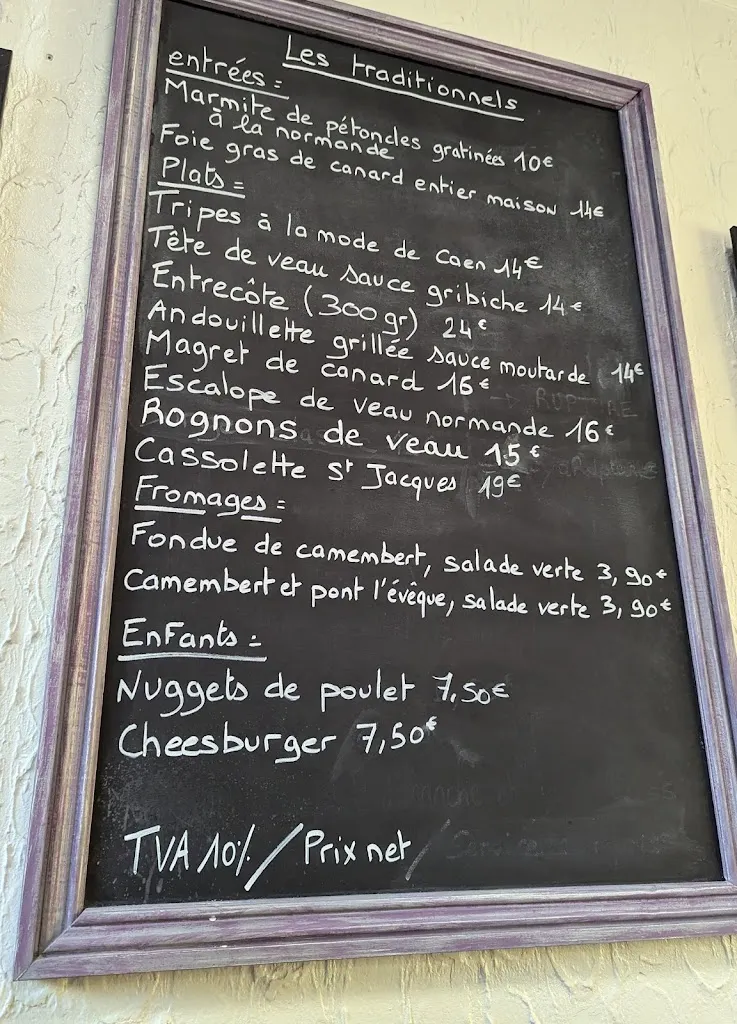 Les traditionnels
entrées :
Marmite de pétoncles gratinées 10€
à la normande
Foie gras de canard entier maison 14€
Plats :
Tripes à la mode de Caen 14€
Tête de veau sauce gribiche 14€
Entrecôte (300gr) 24€
Andouillette grillée sauce moutarde 14€
Magret de canard 16€
Escalope de veau normande 16€
Rognons de veau 15€
Cassolette St Jacques 19€
Fromages :
Fondue de camembert, salade verte 3,90€
Camembert et pont l'évêque, salade verte 3,90€
EnFants :
Nuggets de poulet 7,50€
Cheesburger 7,50€
TVA 10% / Prix net